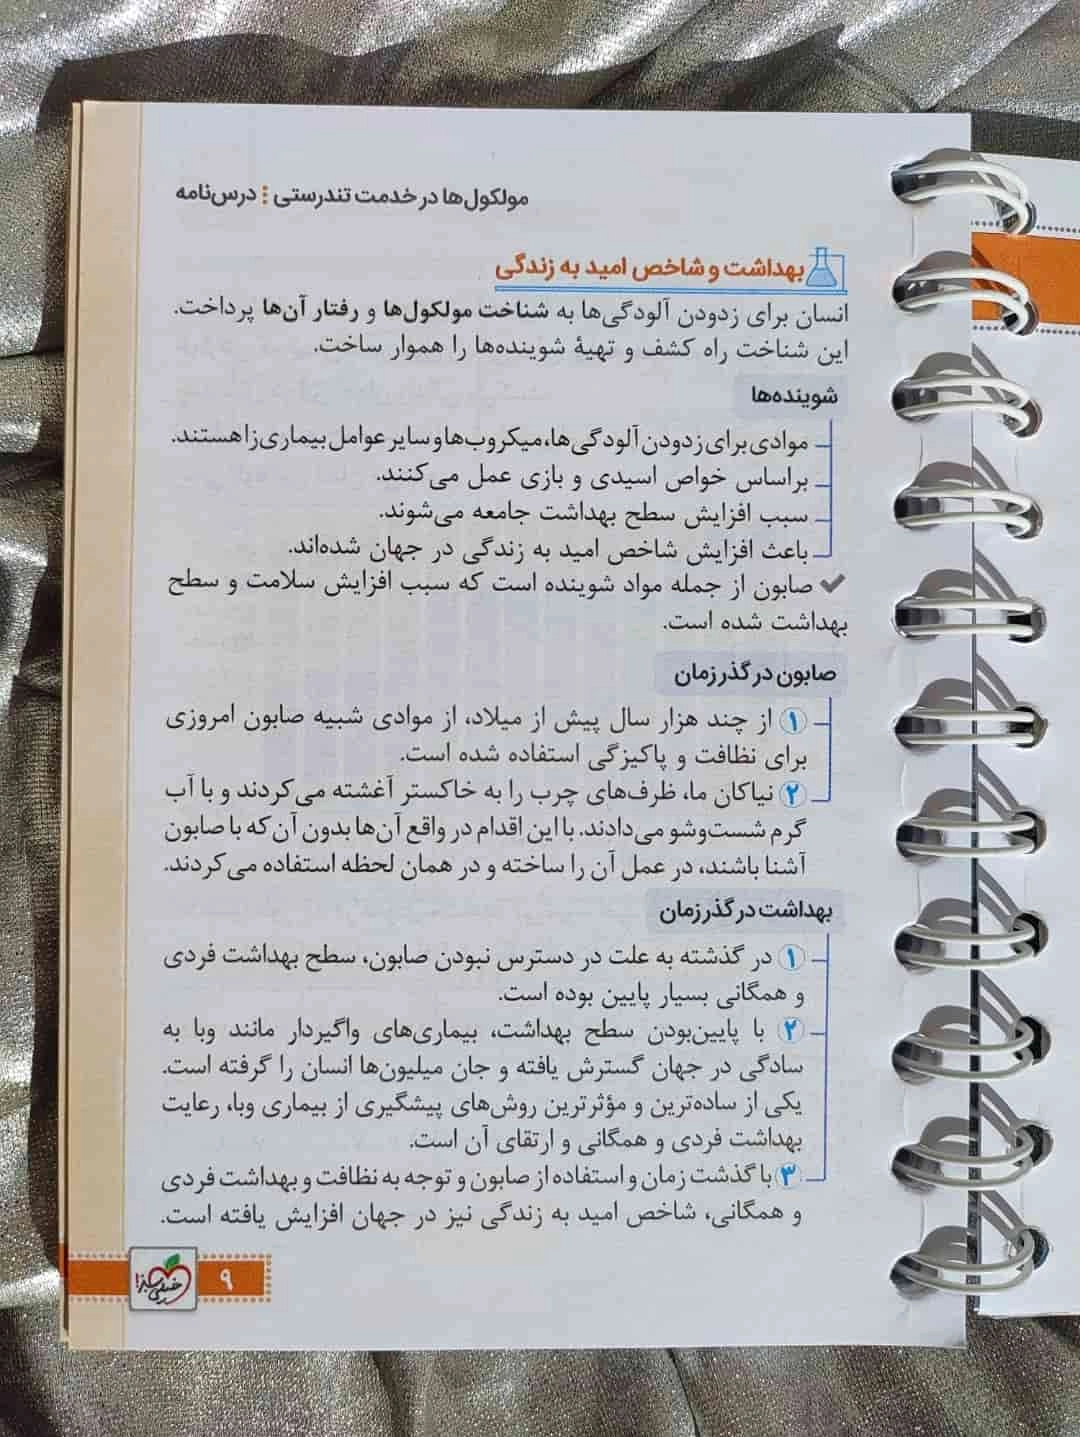 مولکول‌ها در خدمت تندرستی : درس‌نامه
بهداشت و شاخص امید به زندگی
انسان برای زدودن آلودگی‌ها به شناخت مولکول‌ها و رفتار آن‌ها پرداخت.
این شناخت راه کشف و تهیهٔ شوینده‌ها را هموار ساخت.
شوینده‌ها
موادی برای زدودن آلودگی‌ها، میکروب‌ها و سایر عوامل بیماری‌زا هستند.
براساس خواص اسیدی و بازی عمل می‌کنند.
سبب افزایش سطح بهداشت جامعه می‌شوند.
باعث افزایش شاخص امید به زندگی در جهان شده‌اند.
✔ صابون از جمله مواد شوینده است که سبب افزایش سلامت و سطح
بهداشت شده است.
صابون در گذر زمان
۱ از چند هزار سال پیش از میلاد، از موادی شبیه صابون امروزی
برای نظافت و پاکیزگی استفاده شده است.
۲ نیاکان ما، ظرف‌های چرب را به خاکستر آغشته می‌کردند و با آب
گرم شست‌وشو می‌دادند. با این اقدام در واقع آن‌ها بدون آن‌که با صابون
آشنا باشند، در عمل آن را ساخته و در همان لحظه استفاده می‌کردند.
بهداشت در گذر زمان
۱ در گذشته به علت در دسترس نبودن صابون، سطح بهداشت فردی
و همگانی بسیار پایین بوده است.
۲ با پایین‌بودن سطح بهداشت، بیماری‌های واگیردار مانند وبا به
سادگی در جهان گسترش یافته و جان میلیون‌ها انسان را گرفته است.
یکی از ساده‌ترین و مؤثرترین روش‌های پیشگیری از بیماری وبا، رعایت
بهداشت فردی و همگانی و ارتقای آن است.
۳ با گذشت زمان و استفاده از صابون و توجه به نظافت و بهداشت فردی
و همگانی، شاخص امید به زندگی نیز در جهان افزایش یافته است.
خیلی سبز!
۹